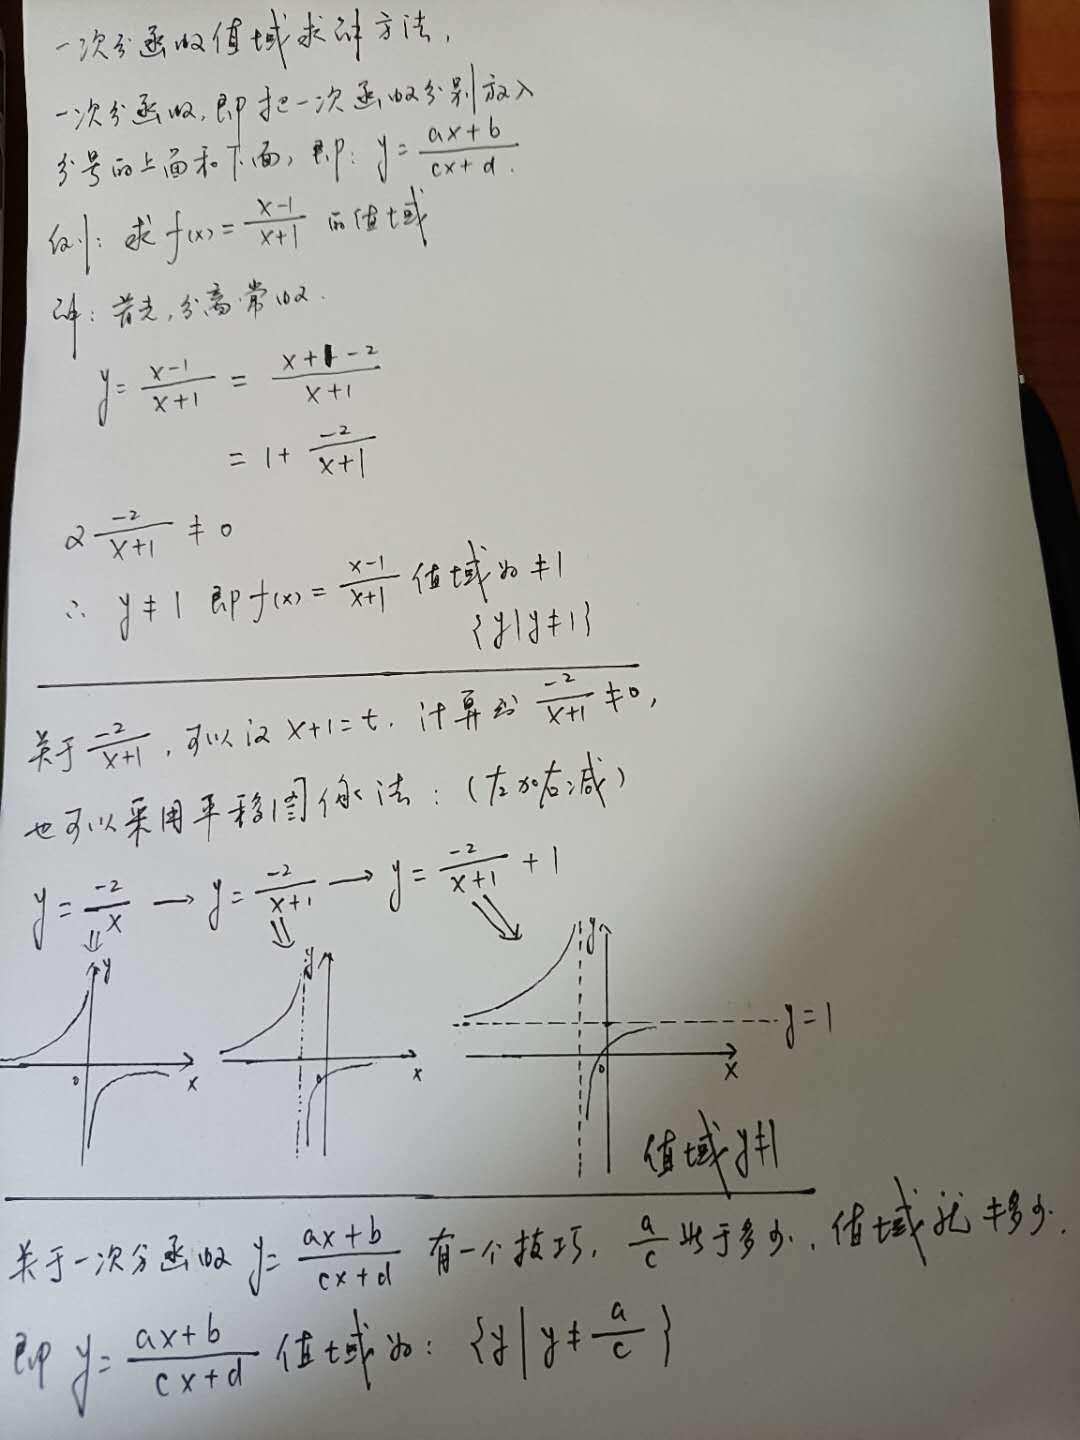 一次分函数值域求解方法,
一次分函数,即把一次函数分别放入
分号的上面和下面,即: y = (ax+b)/(cx+d).
例: 求 f(x) = (x-1)/(x+1) 的值域
解: 首先,分离常数.
y = (x-1)/(x+1) = (x+1-2)/(x+1)
= 1 + (-2)/(x+1)
(-2)/(x+1) ≠ 0
∴ y ≠ 1 即 f(x) = (x-1)/(x+1) 值域为 ≠1
{y|y≠1}
关于 (-2)/(x+1), 可以设 x+1=t. 计算出 (-2)/(x+1) ≠0,
也可以采用平移图像法: (左加右减)
y = (-2)/x → y = (-2)/(x+1) → y = (-2)/(x+1) + 1
y
x
0
y
x
0
y
x
0
y=1
值域 y≠1
关于一次分函数 y = (ax+b)/(cx+d) 有一个技巧, a/c 等于多少, 值域就≠多少.
即 y = (ax+b)/(cx+d) 值域为: {y | y ≠ a/c}